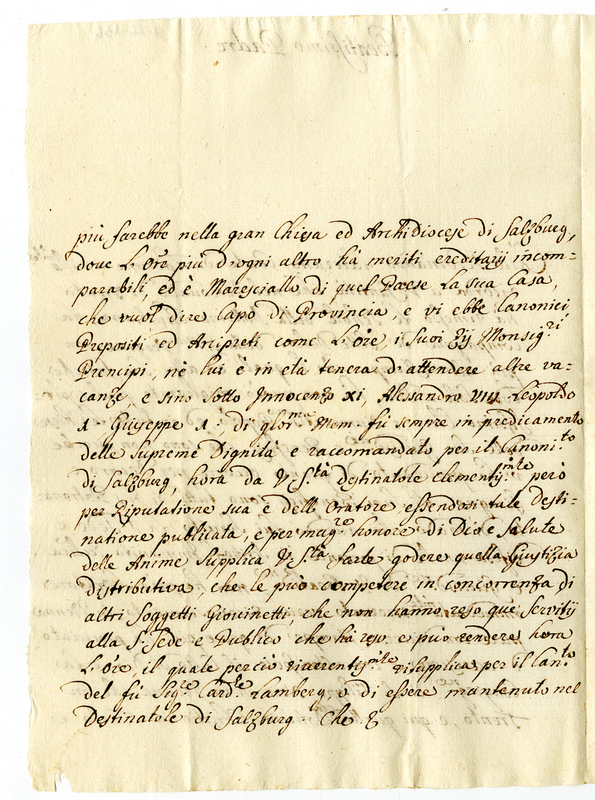 più sarebbe nella gran Chiesa ed Archidiocese di Salzburg,
doue L'Ore più d'ogni altro hà meriti ereditarij incom=
parabili, ed è Maresciallo di quel Paese La sua Casa,
che vuol dire Capo di Prouincia, e vi ebbe Canonici,
Prepositi ed Arcipreti come L'Ore, i suoi Zij Monsig.ri
Prencipi, nè lui è in età tenera d'attendere altre va=
canze, e sino sotto Innocenzo XI, Alessandro VIII Leopoldo
1. Giuseppe 1. di glor.me Mem. fù sempre in predicamento
delle Supreme Dignità e raccomandato per il Canoni.to
di Salzburg, hora da V. S.tà destinatole clementiss.mte però
per Riputatione sua e dell'Oratore, essendosi tale Desti=
natione publicata, e per mag.re honore di Dio e Salute
delle Anime Supplica V. S.tà farle godere quella Giustizia
distributiva, che le può competere in concorrenza di
altri Soggetti Giouinetti, che non hanno reso que' Seruitij
alla S. Sede e Publico che hà reso, e può rendere hora
L'Ore il quale perciò riuerentiss.mte supplica per il Can.to
del fù Sig.re Card.le Lamberg, o di essere mantenuto nel
Destinatole di Salzburg. Che &